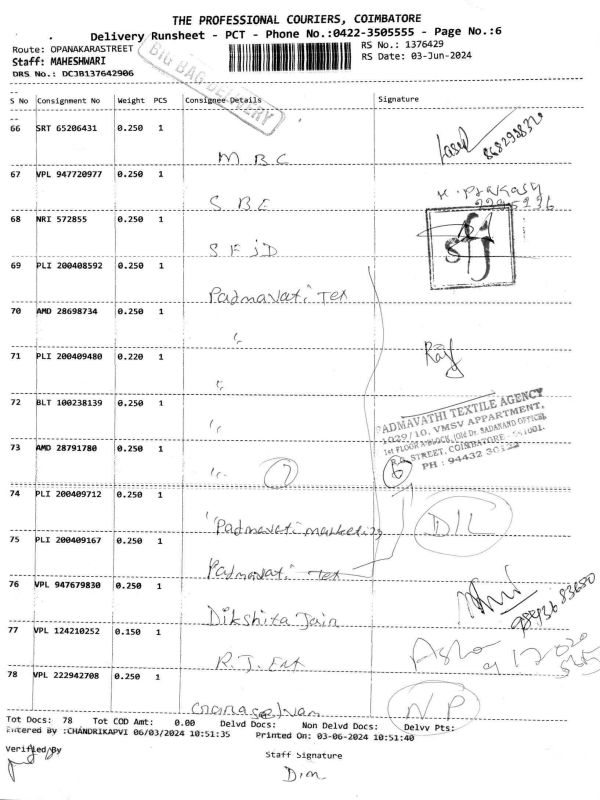 THE PROFESSIONAL COURIERS, COIMBATORE
Delivery Runsheet - PCT - Phone No.:0422-3505555 - Page No.:6
Route: OPANAKARASTREET
RS No.: 1376429
Staff: MAHESHWARI
RS Date: 03-Jun-2024
DRS No.: DCJB137642906
BIG BAG DELIVERY
S No Consignment No Weight PCS Consignee Details Signature
66 SRT 65206431 0.250 1
M B C
67 VPL 947720977 0.250 1
S B E
68 NRI 572855 0.250 1
S F j D
69 PLI 200408592 0.250 1
Padmavati Tex
70 AMD 28698734 0.250 1
71 PLI 200409480 0.220 1
72 BLT 100238139 0.250 1
PADMAVATHI TEXTILE AGENCY
1029/10, VMSV APPARTMENT,
1st FLOOR A-BLOCK, (Old Dr. SADANAND OFFICE)
R.G. STREET, COIMBATORE
PH : 94432
73 AMD 28791780 0.250 1
7
6
74 PLI 200409712 0.250 1
Padmavati marketing
D/L
75 PLI 200409167 0.250 1
Padmavati Tex
76 VPL 947679830 0.250 1
Dikshita Jain
77 VPL 124210252 0.150 1
R.J. Ent
78 VPL 222942708 0.250 1
NP
Tot Docs: 78 Tot COD Amt: 0.00 Delvd Docs: Non Delvd Docs: Delvv Pts:
Entered By :CHANDRIKAPVI 06/03/2024 10:51:35 Printed On: 03-06-2024 10:51:40
Verified By
Staff Signature